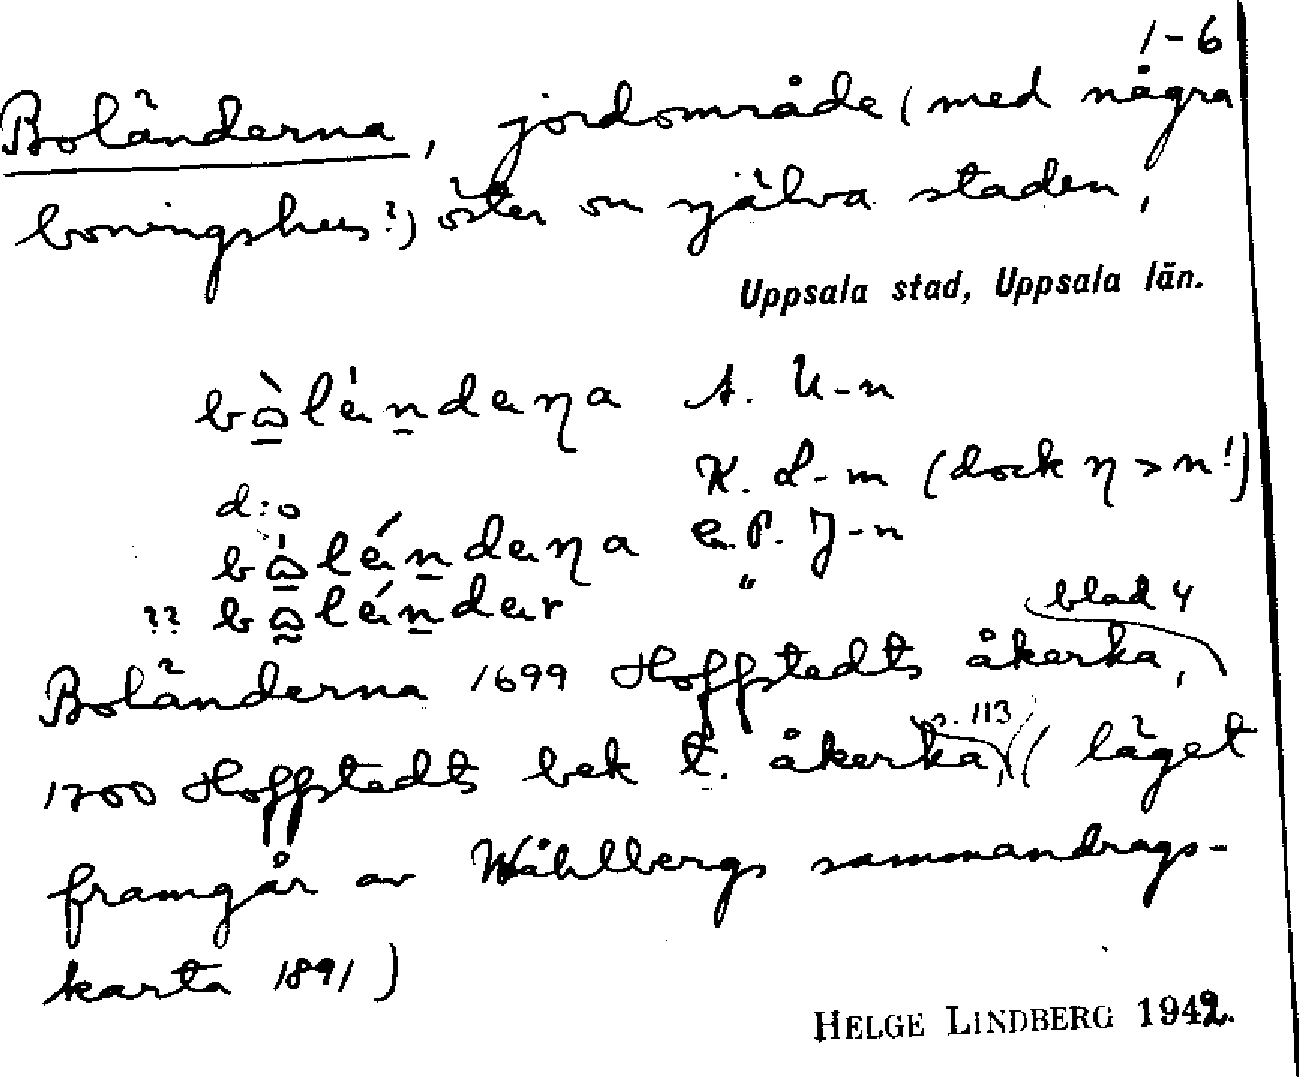 1-6
Boländerna, jordområde (med några
boningshus?) öster om själva staden,
Uppsala stad, Uppsala län.
A. U-n
K. L-m (dock η > n!)
d:o
e.P. J-n
??
"
blad 4
Boländerna 1699 Hoffstedts åkerka,
s. 113
1700 Hoffstedts bek t. åkerka, (läget
framgår av Wåhlbergs sammandrags-
karta 1891)
HELGE LINDBERG 1942.